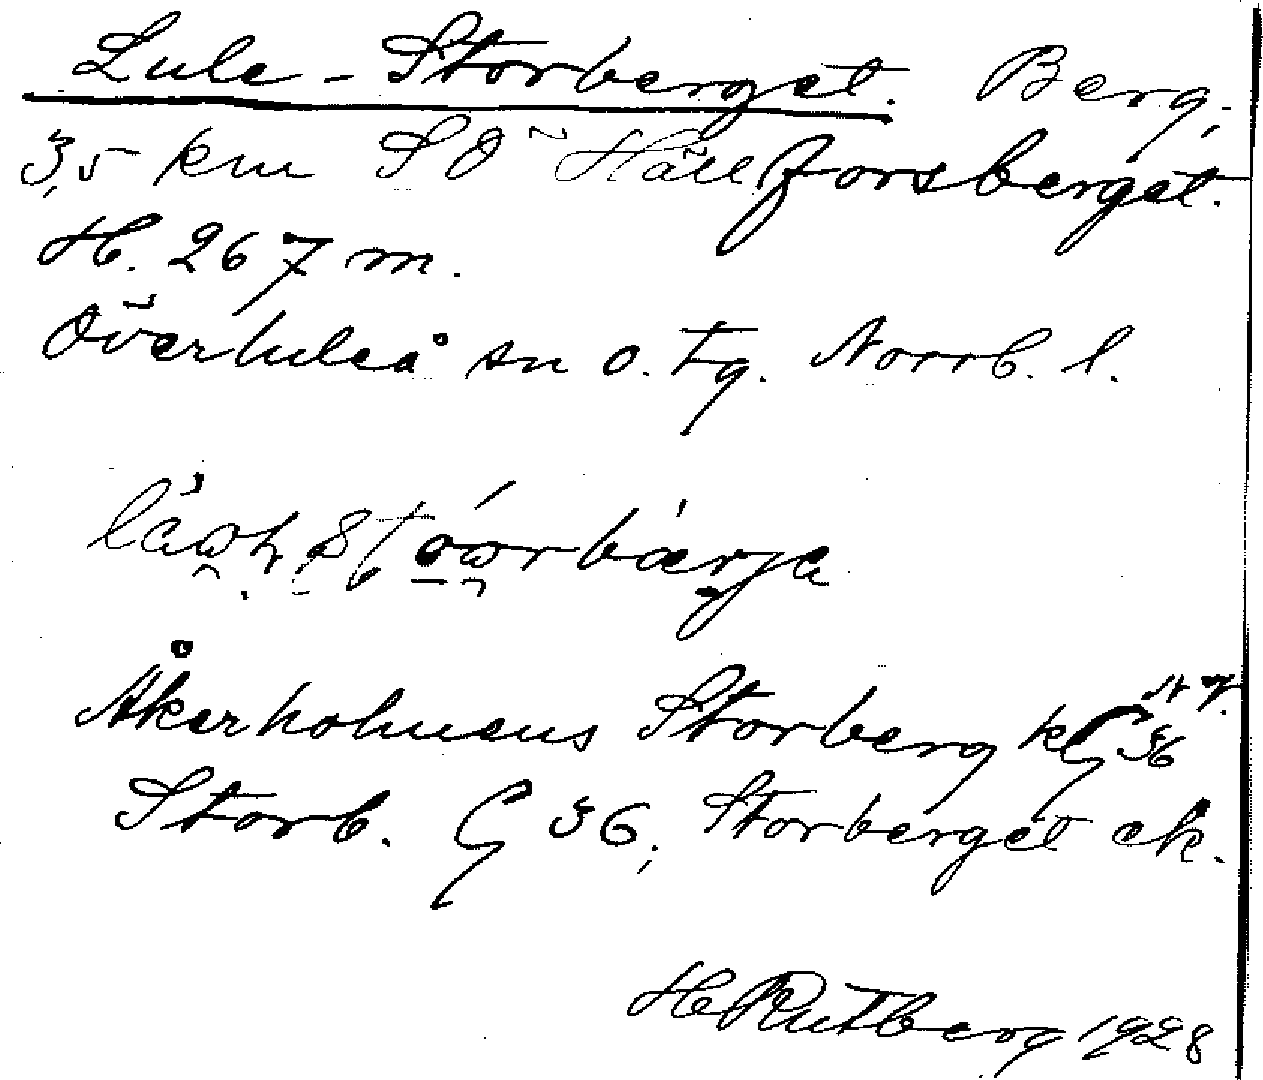 Lule-Storberget. Berg,
3,5 km SÖ Hällforsberget.
H. 267 m.
Överluleå sn o. tg. Norrb. l.
Åkerholmens Storberg
Storb. G 36, Storberget ek.
H Rutberg 1928